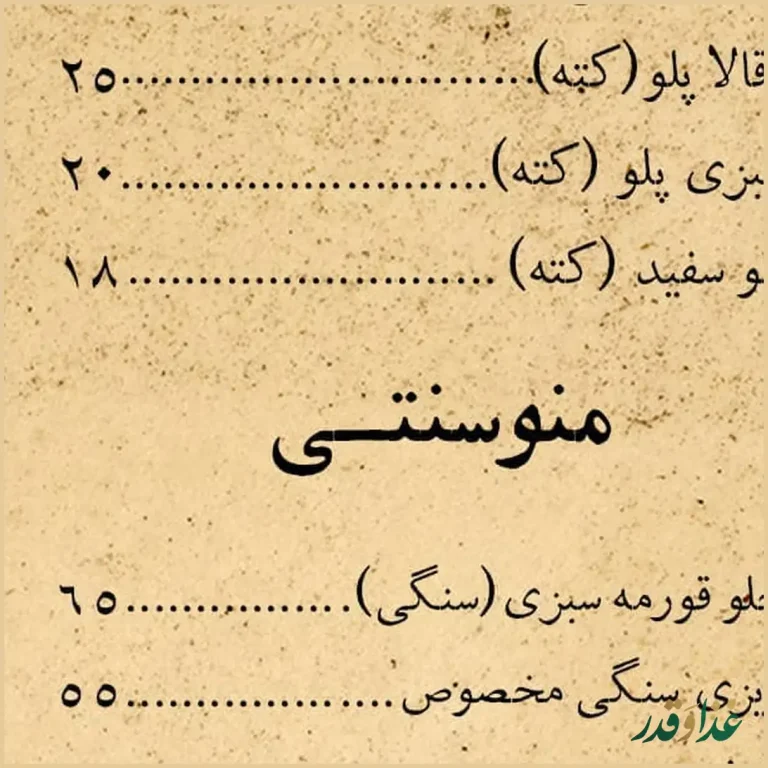 قالا پلو (کته)..............................۲۵
بزی پلو (کته)..........................۲۰
و سفید (کته)..........................۱۸
منو سنتی
لو قورمه سبزی (سنگی).................٦۵
یزی سنگی مخصوص....................۵۵
غذا و قدر